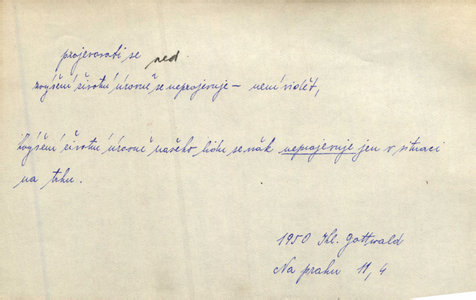 projevovati se ned.
zvýšení životní úrovně se neprojevuje – není vidět,
Zvýšení životní úrovně našeho lidu se však neprojevuje jen v situaci
na trhu.
1950 Kl. Gottwald
Na prahu 11, 4